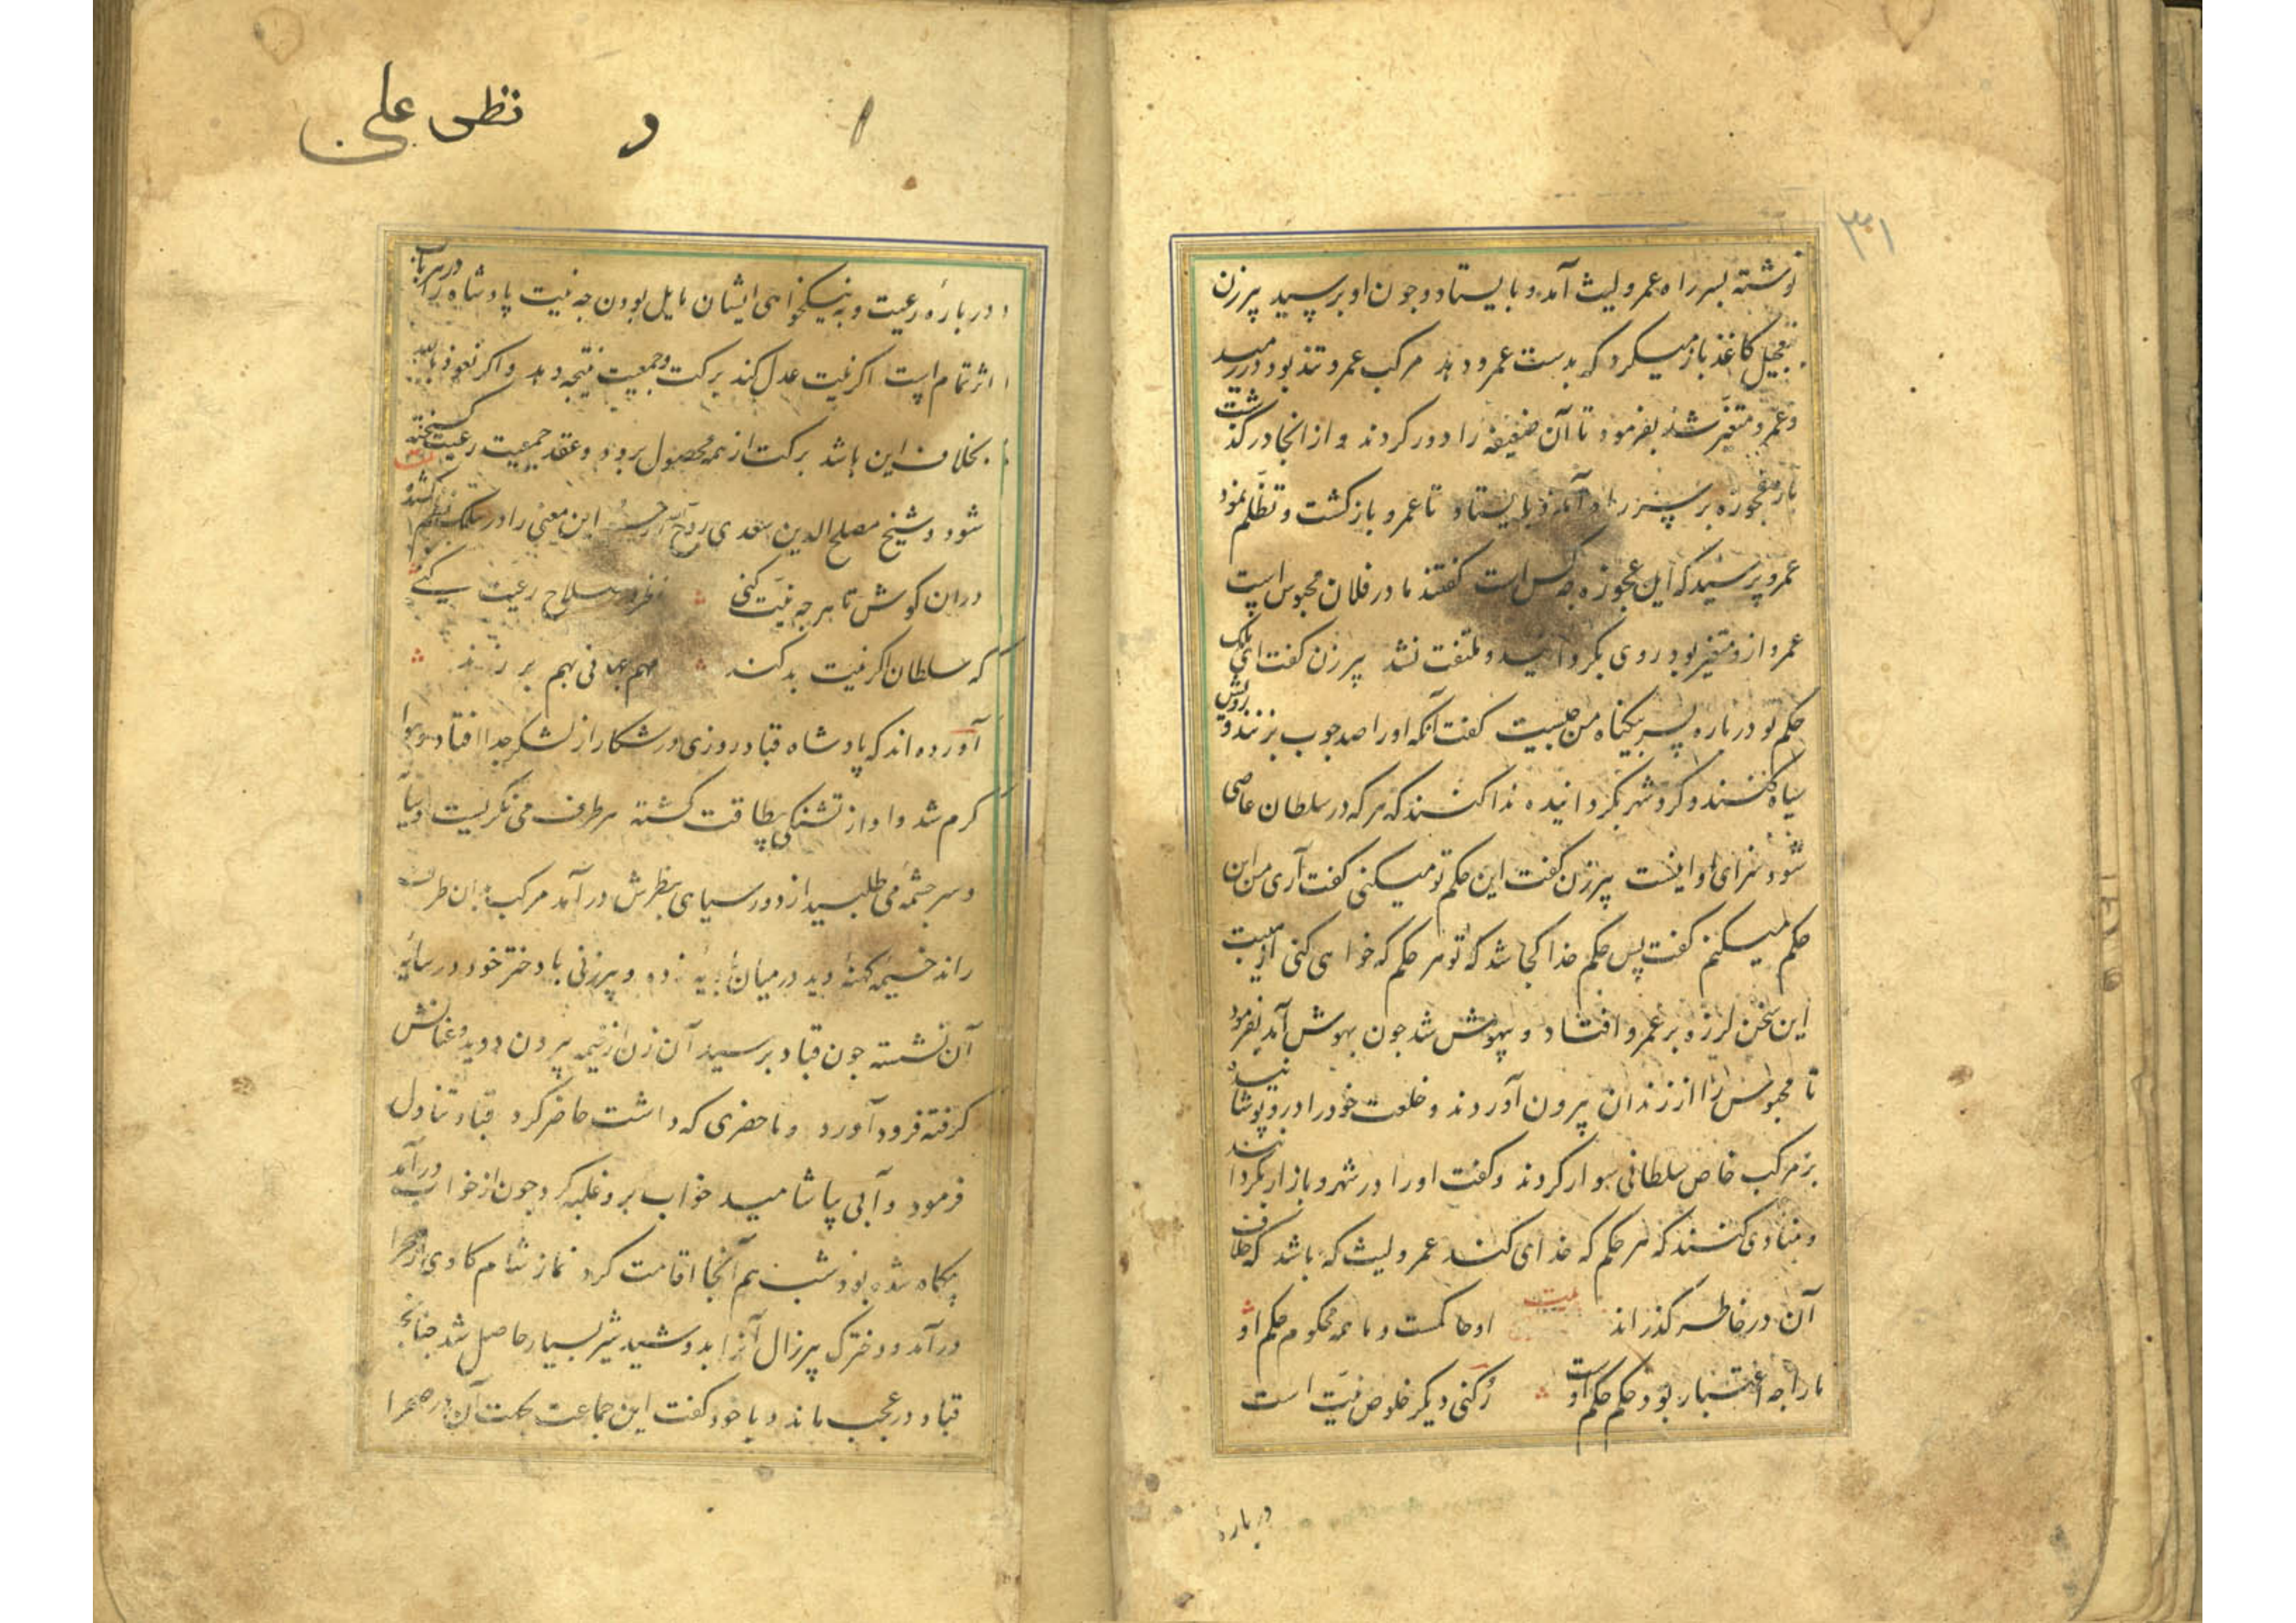 ۳۱
نوشته بسر راه عمرو لیث آمد و بایستاد و چون او برسید پیرزن
بتعجیل کاغذ باز میکرد که بدست عمرو دهد مرکب عمرو تند بود در رمید
و عمرو متغیر شد بفرمود تا آن ضعیفه را دور کردند و از انجا در گذشت
بار عجوزه بر سر راه آمد و بایستاد تا عمرو بازگشت و تظلم نمود
عمرو پرسید که این عجوزه چه کس است گفتند مادر فلان محبوس است
عمرو ازو متغیر بود روی بگردانید و ملتفت نشد پیرزن گفت ای ملک
حکم تو درباره پسر بیگناه من چیست گفت آنکه او را صد چوب بزنند و رویش
سیاه کنند و گرد شهر بگردانیده ندا کنند که هر که در سلطان عاصی
شود سزای او اینست پیرزن گفت این حکم تو میکنی گفت آری من این
حکم میکنم گفت پس حکم خدا کجا شد که تو هر حکم که خواهی کنی از هیبت
این سخن لرزه بر عمرو افتاد و بیهوش شد چون بهوش آمد بفرمود
تا محبوس را از زندان بیرون آوردند و خلعت خود را درو پوشانید
بر مرکب خاص سلطانی سوار کردند و گفت او را در شهر و بازار بگردانند
و منادی کنند که هر حکم که خدای کند عمرو لیث که باشد که خلاف
آن در خاطر گذراند بیت او حاکمست و ما همه محکوم حکم او
ما را چه اختیار بود حکم حکم اوست رکنی دیگر خلوص نیت است
درباره
نظر علی
درباره رعیت و به نیکخواهی ایشان مایل بودن چه نیت پادشاه را در هر باب
اثر تمام است اگر نیت عدل کند برکت و جمعیت نتیجه دهد و اگر نعوذ بالله
بخلاف این باشد برکت از همه محصول برود و عقد جمعیت رعیت گسیخته
شود و شیخ مصلح الدین سعدی این معنی را در سلک نظم کشیده
دران کوش تا هر چه نیت کنی نظر در صلاح رعیت کنی
که سلطان اگر نیت بد کند مهم جهانی بهم بر زند
آورده اند که پادشاه قباد روزی در شکار از لشکر جدا افتاد و هوا
گرم شد و او از تشنگی بیطاقت گشته هر طرف می نگریست و سایه
و سر چشمه می طلبید از دور سیاهی بنظرش در آمد مرکب بدان طرف
راند خیمه کهنه دید در میان بادیه زده و پیرزنی با دختر خود در سایه
آن نشسته چون قباد برسید آن زن از خیمه بیرون دوید و عنانش
گرفته فرود آورد و ماحضری که داشت حاضر کرد قباد تناول
فرمود و آبی بیاشامید خواب برو غلبه کرد چون از خواب در آمد
بیگاه شده بود شب هم آنجا اقامت کرد نماز شام گاوی از صحرا
درآمد و دخترک پیرزال آنرا بدوشید شیر بسیار حاصل شد چنانچه
قباد در عجب ماند و با خود گفت این جماعت بجهت آن در صحرا